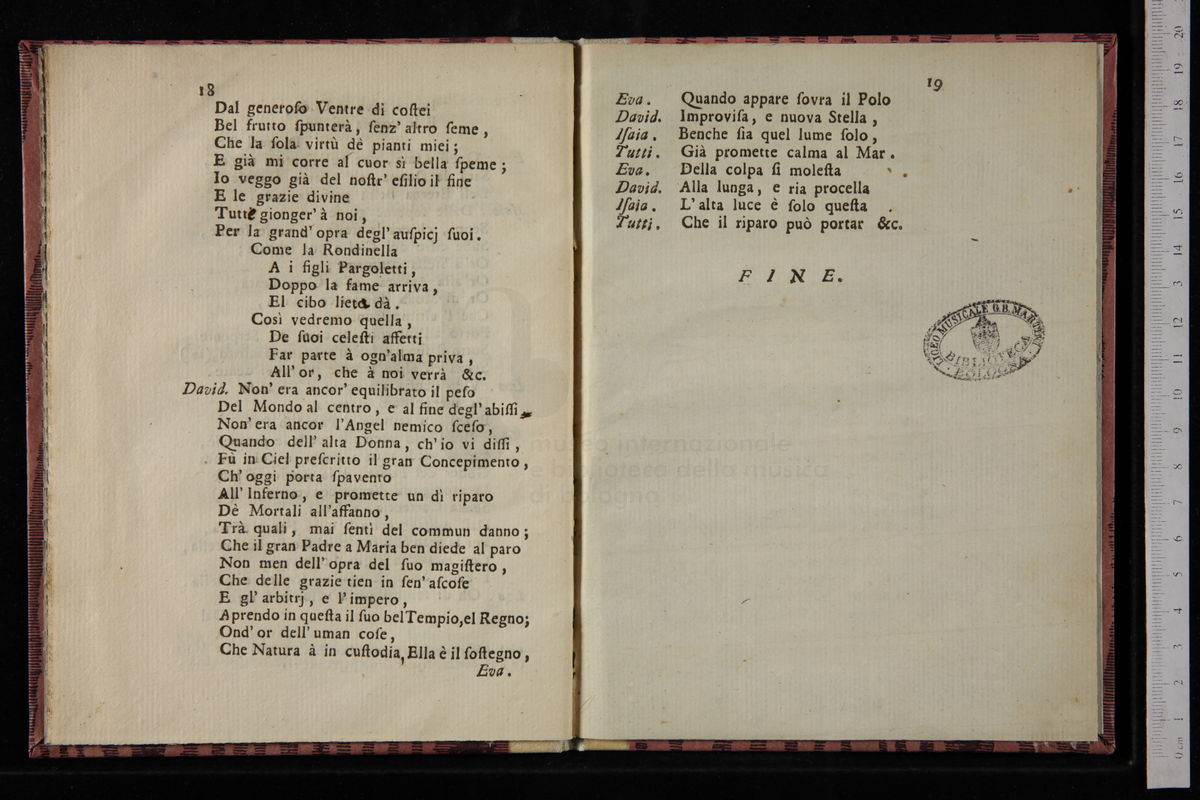 18
Dal generoſo Ventre di coſtei
Bel frutto ſpunterà, ſenz' altro ſeme,
Che la ſola virtù dè pianti miei;
E già mi corre al cuor sì bella ſpeme;
Io veggo già del noſtr' eſilio il fine
E le grazie divine
Tutte gionger' à noi,
Per la grand' opra degl' auſpicj ſuoi.
Come la Rondinella
A i figli Pargoletti,
Doppo la fame arriva,
El cibo lieta dà.
Così vedremo quella,
De ſuoi celeſti affetti
Far parte à ogn'alma priva,
All' or, che à noi verrà &c.
David. Non' era ancor' equilibrato il peſo
Del Mondo al centro, e al fine degl' abiſſi,
Non' era ancor l'Angel nemico ſceſo,
Quando dell' alta Donna, ch' io vi diſſi,
Fù in Ciel preſcritto il gran Concepimento,
Ch' oggi porta ſpavento
All' Inferno, e promette un dì riparo
Dè Mortali all'affanno,
Trà quali, mai ſentì del commun danno;
Che il gran Padre a Maria ben diede al paro
Non men dell' opra del ſuo magiſtero,
Che delle grazie tien in ſen' aſcoſe
E gl' arbitrj, e l' impero,
Aprendo in queſta il ſuo bel Tempio, el Regno;
Ond' or dell' uman coſe,
Che Natura à in cuſtodia, Ella è il ſoſtegno,
Eva.
19
Eva. Quando appare ſovra il Polo
David. Improviſa, e nuova Stella,
Iſaia. Benche ſia quel lume ſolo,
Tutti. Già promette calma al Mar.
Eva. Della colpa ſi moleſta
David. Alla lunga, e ria procella
Iſaia. L' alta luce è ſolo queſta
Tutti. Che il riparo può portar &c.
FINE.
LICEO MUSICALE G.B. MARTINI
BIBLIOTECA
BOLOGNA
museo internazionale
e biblioteca della musica
di bologna
0 cm 1 2 3 4 5 6 7 8 9 10 11 12 13 14 15 16 17 18 19 20